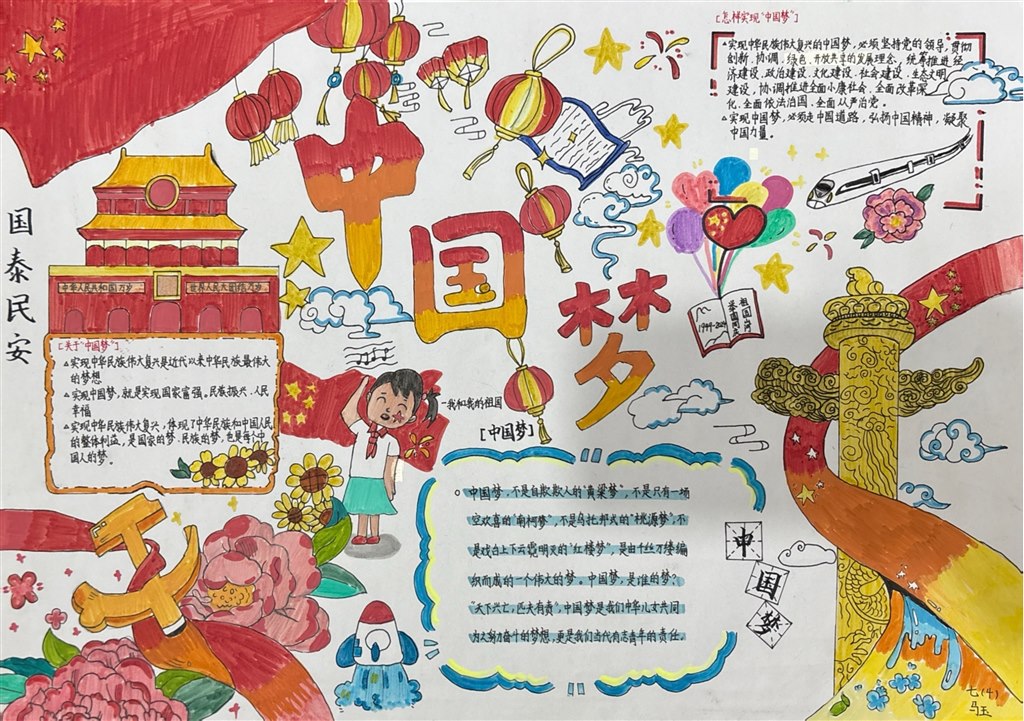 中国梦
国泰民安
中华人民共和国万岁
世界人民大团结万岁
[关于“中国梦”]
△实现中华民族伟大复兴是近代以来中华民族最伟大
的梦想
△实现中国梦,就是实现国家富强、民族振兴、人民
幸福
△实现中华民族伟大复兴,体现了中华民族和中国人民
的整体利益,是国家的梦、民族的梦,也是每个中
国人的梦。
[怎样实现“中国梦”]
△实现中华民族伟大复兴的中国梦,必须坚持党的领导,贯彻
创新、协调、绿色、开放共享的发展理念,统筹推进经
济建设、政治建设、文化建设、社会建设、生态文明
建设,协调推进全面小康社会、全面改革深
化、全面依法治国、全面从严治党。
△实现中国梦,必须走中国道路,弘扬中国精神,凝聚
中国力量。
1949-2024
祖国山河
一我和我的祖国
[中国梦]
中国梦,不是自欺欺人的“黄粱梦”,不是只有一场
空欢喜的“南柯梦”,不是乌托邦式的“桃源梦”,不
是戏台上下云霞明灭的“红楼梦”,是由千丝万缕编
织而成的一个伟大的梦。中国梦,是谁的梦?
“天下兴亡,匹夫有责”,中国梦是我们中华儿女共同
为之努力奋斗的梦想,更是我们当代有志青年的责任。
中
国
梦
七(4)
马玉